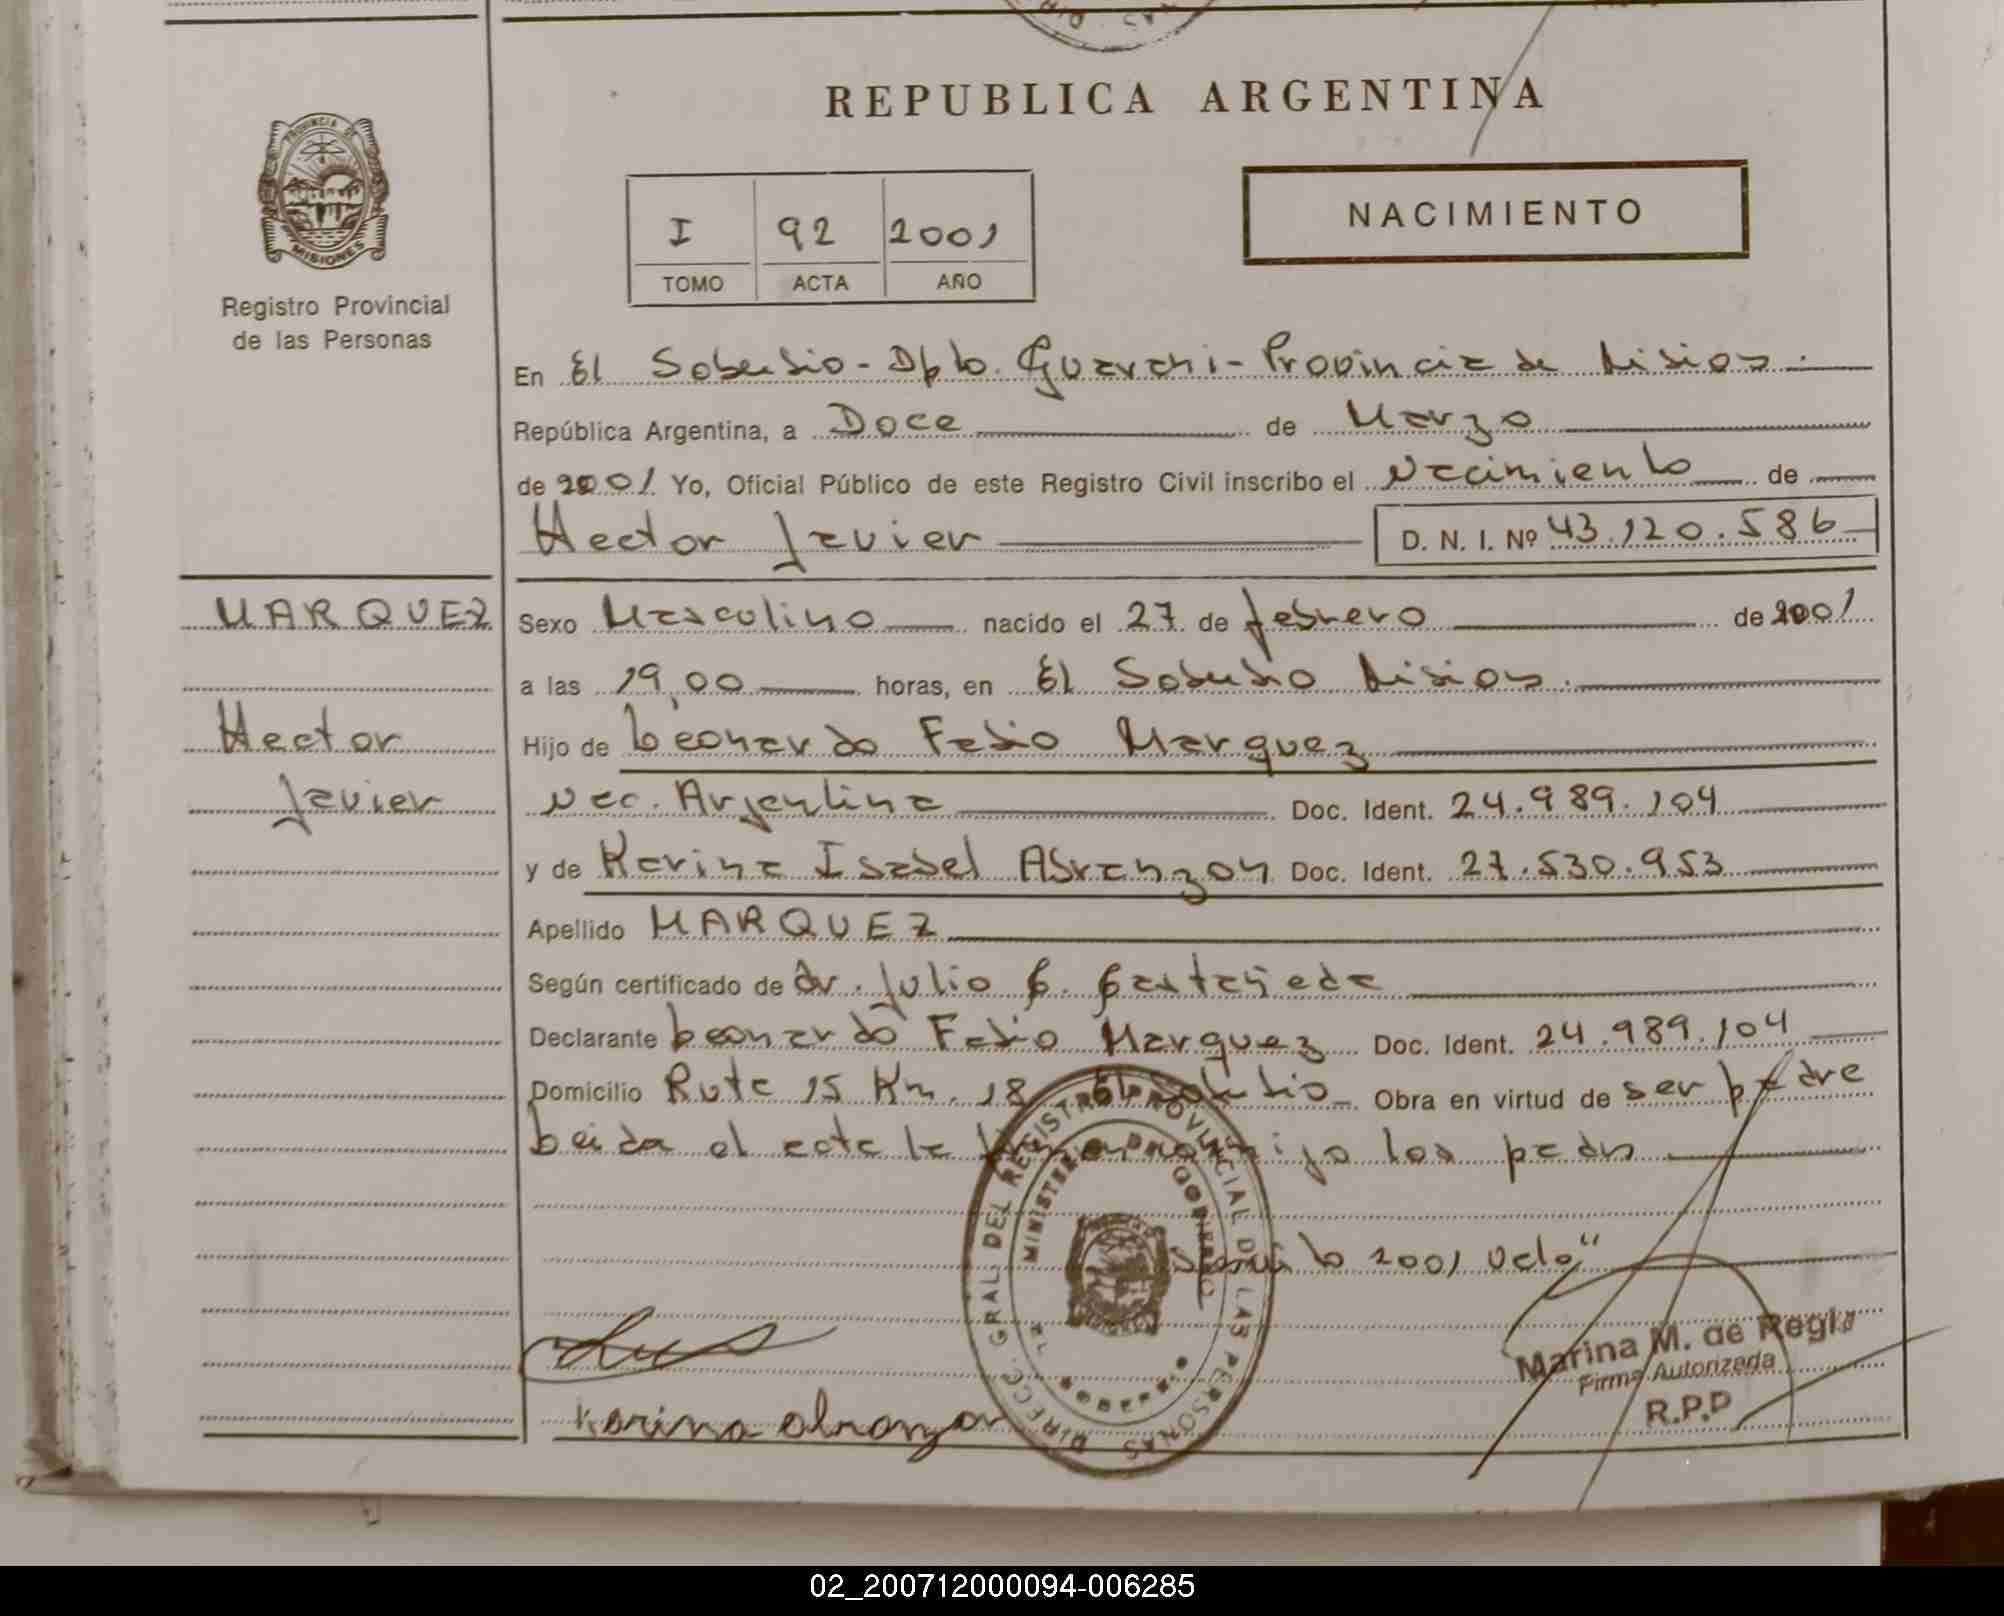 REPUBLICA ARGENTINA
PROVINCIA DE
MISIONES
Registro Provincial
de las Personas
I 92 2001
TOMO ACTA AÑO
NACIMIENTO
En El Soberbio - Dpto. Guarani - Provincia de Misiones.
República Argentina, a Doce de Marzo
de 2001 Yo, Oficial Público de este Registro Civil inscribo el Nacimiento de
Hector Javier D. N. I. Nº 43.120.586
MARQUEZ
Hector
Javier
Sexo Masculino nacido el 27 de febrero de 2001
a las 19,00 horas, en El Soberbio Misiones.
Hijo de Leonardo Fabio Marquez
Nac. Argentina Doc. Ident. 24.989.104
y de Karina Isabel Abranzon Doc. Ident. 27.530.953
Apellido MARQUEZ
Según certificado de Dr. Julio C. Castañeda
Declarante Leonardo Fabio Marquez Doc. Ident. 24.989.104
Domicilio Ruta 15 Km. 18 El Soberbio Obra en virtud de ser padre
Leida el acta la firman conmigo los padres
2001 Vale"
DIRECC. GRAL. DEL REGISTRO PROVINCIAL DE LAS PERSONAS
MINISTERIO DE GOBIERNO
Karina Abranzon
Marina M. de Regla
Firma Autorizada
R.P.P
02_200712000094-006285